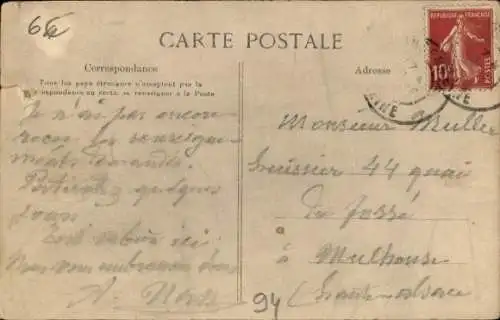 65
CARTE POSTALE
RÉPUBLIQUE FRANÇAISE
10c
POSTES
Correspondance
Adresse
Tous les pays étrangers n'acceptent pas la
correspondance au recto, se renseigner à la Poste
Je n'ai pas encore
reçu les renseigne-
ments demandés.
quelques
jours
Tout va bien ici
Nous vous embrassons
A.
Monsieur Muller
huissier 44 quai
du Fossé
à Mulhouse
94 (Haute-Alsace